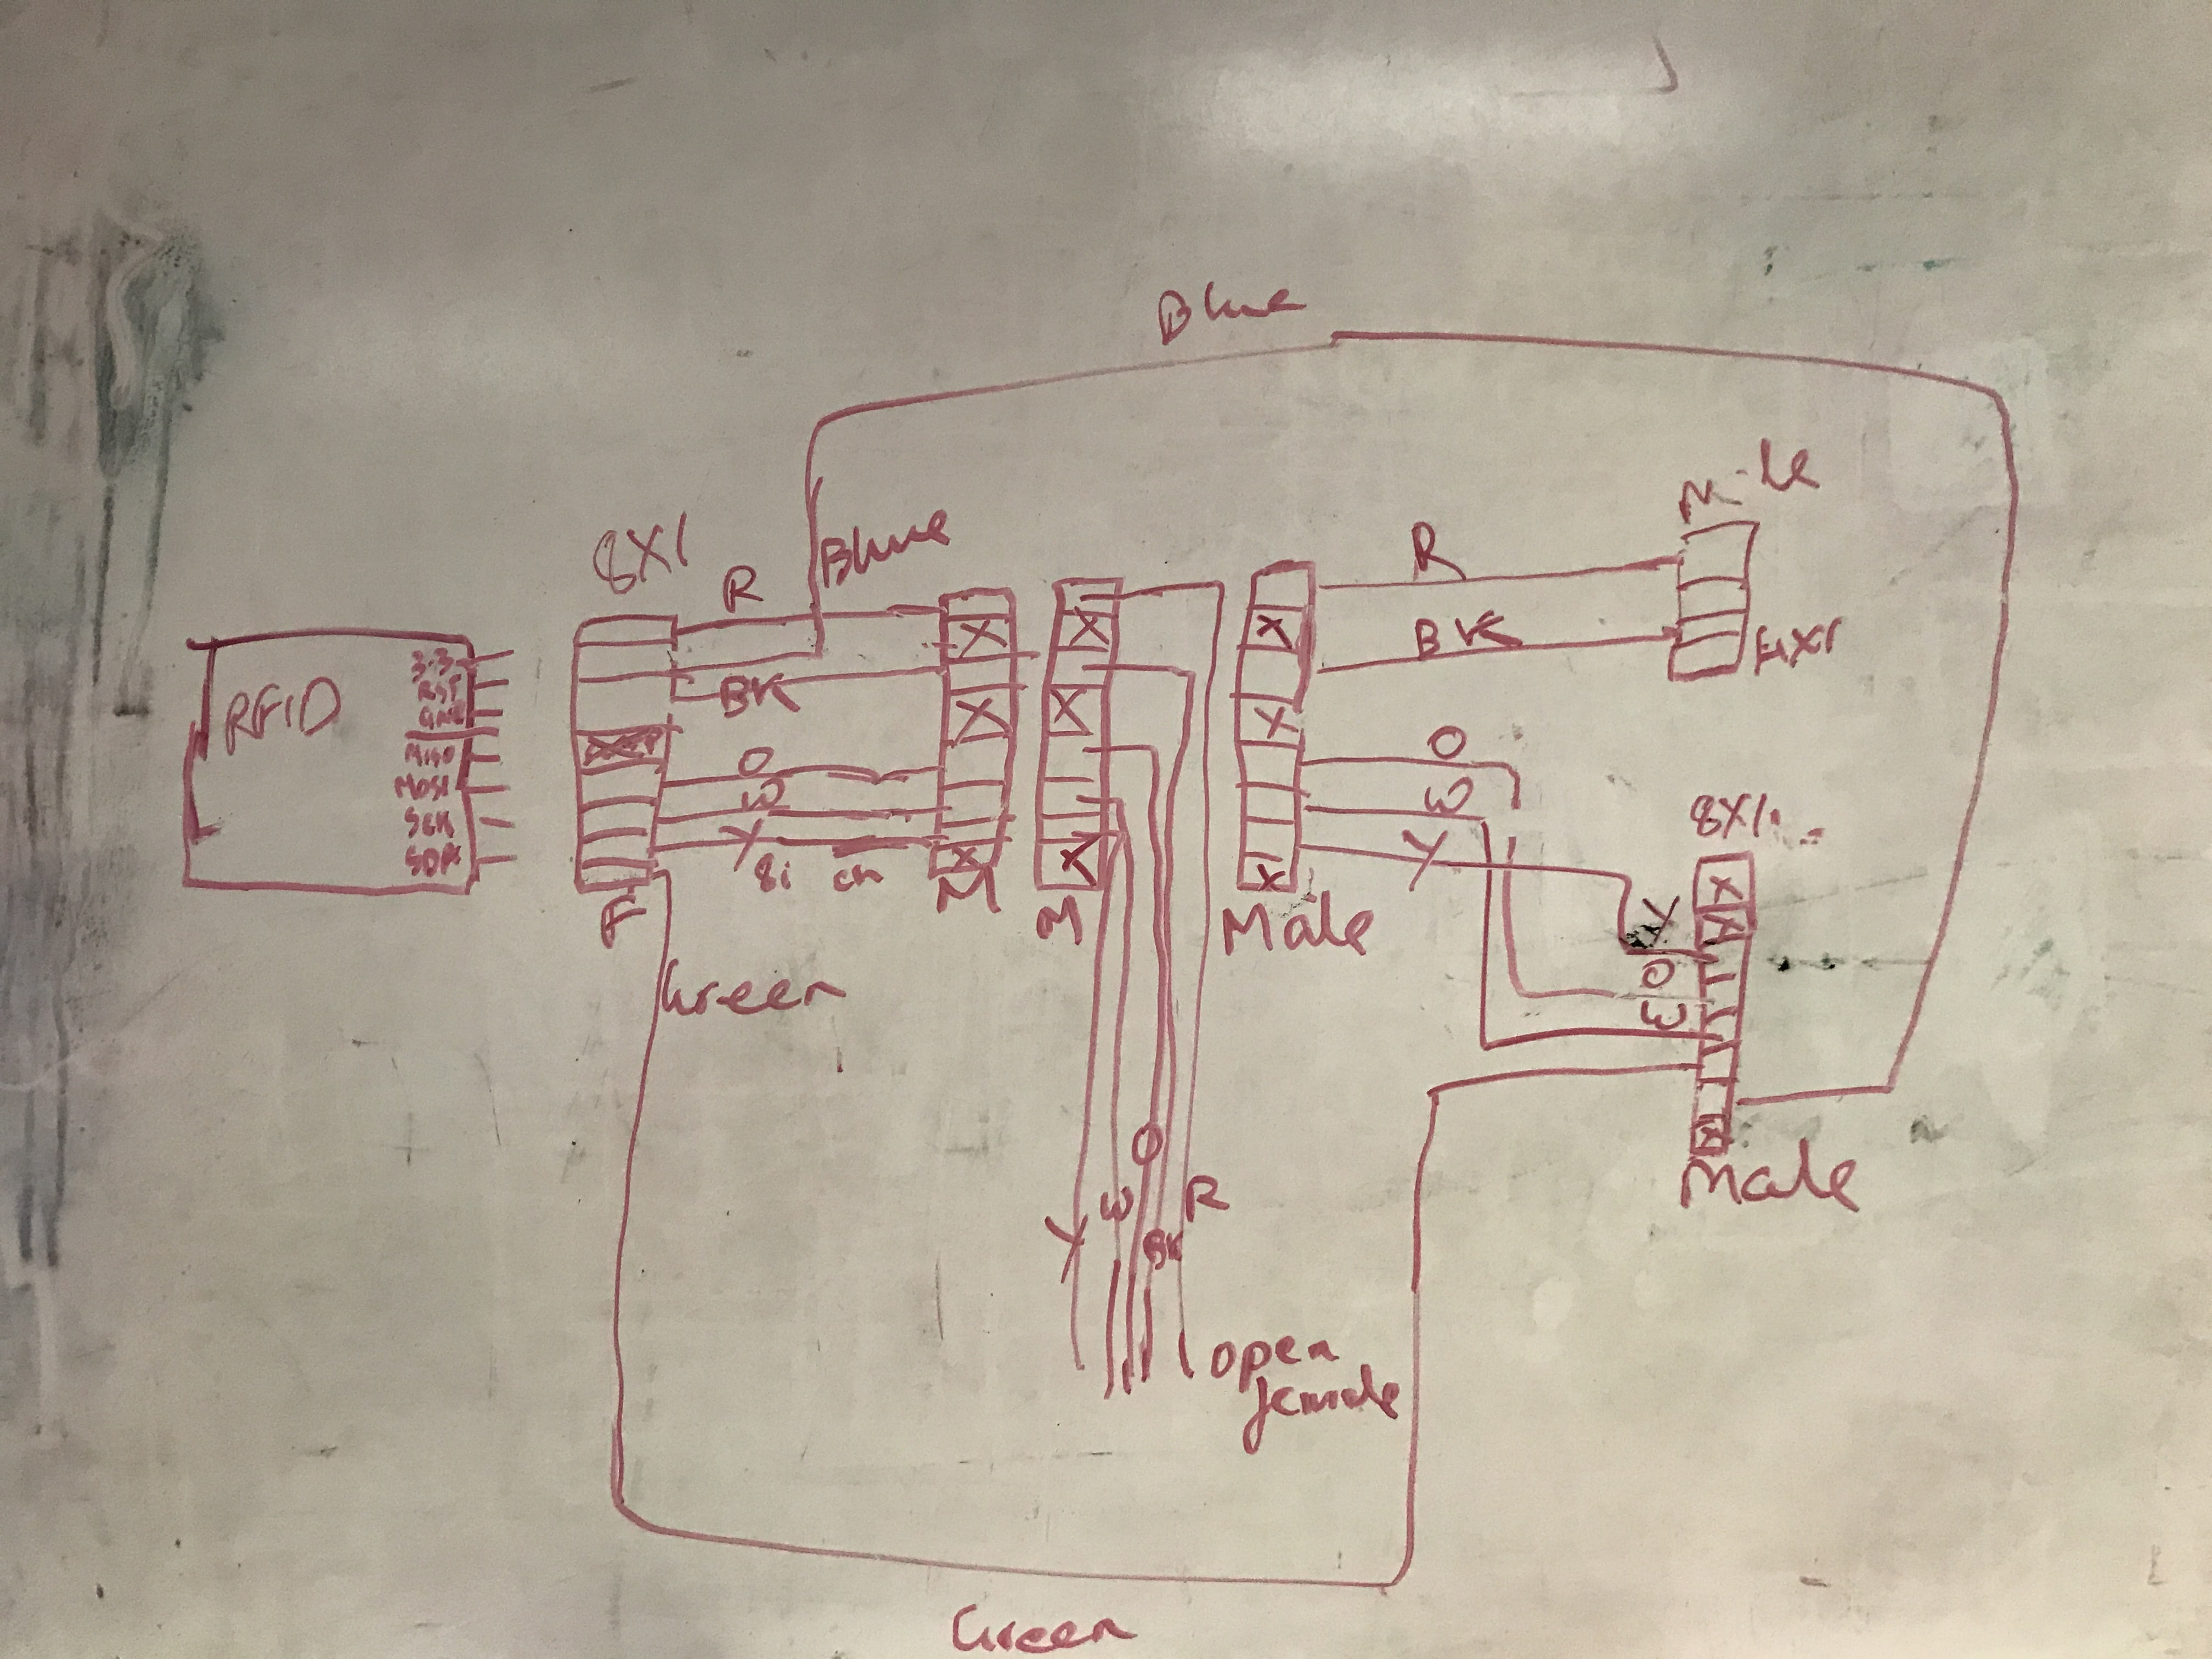 Blue
8X1
R
Blue
R
BK
4X1
RFID
3.3
RST
GND
MISO
MOSI
SCK
SDA
BK
O
W
Y
F
M
M
X
X
X
X
X
X
X
X
X
Male
O
W
Y
8X1
X
X
Y
O
W
X
Male
Green
O
W
R
Y
BK
open
female
Green